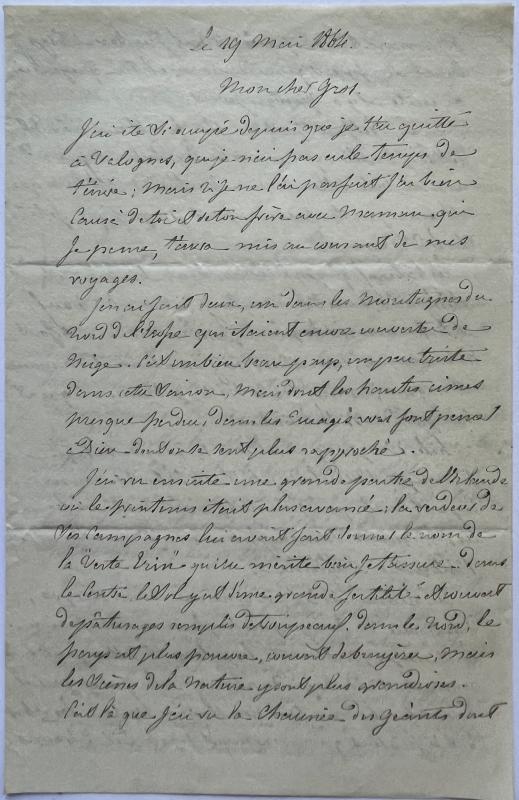 Le 19 Mai 1864.
Mon cher Gros.
J'ai été si occupé depuis que je t'ai quitté
à Valognes, que je n'ai pas eu le temps de
t'écrire; mais si je ne l'ai pas fait j'ai bien
causé de toi et de ton frère avec Maman qui
je pense, t'aura mis au courant de mes
voyages.
J'en ai fait deux, un dans les Montagnes du
Nord de l'Ecosse qui étaient encore couvertes de
Neige. C'est un bien beau pays, un peu triste
dans cette saison, mais dont les hautes cimes
presque perdues dans les Nuages vous font penser
à Dieu dont on se sent plus rapproché.
J'ai vu ensuite une grande partie de l'Irlande
où le printemps était plus avancé; la verdeur de
ses campagnes lui avait fait donner le nom de
la "Verte Erin" qu'elle mérite bien je t'assure. dans
le Centre, le sol y est d'une grande fertilité et couvert
de pâturages remplis de troupeaux. dans le Nord, le
pays est plus pauvre, couvert de bruyères, mais
les scènes de la nature y sont plus grandioses.
C'est là que j'ai vu la Chaussée des géants dont